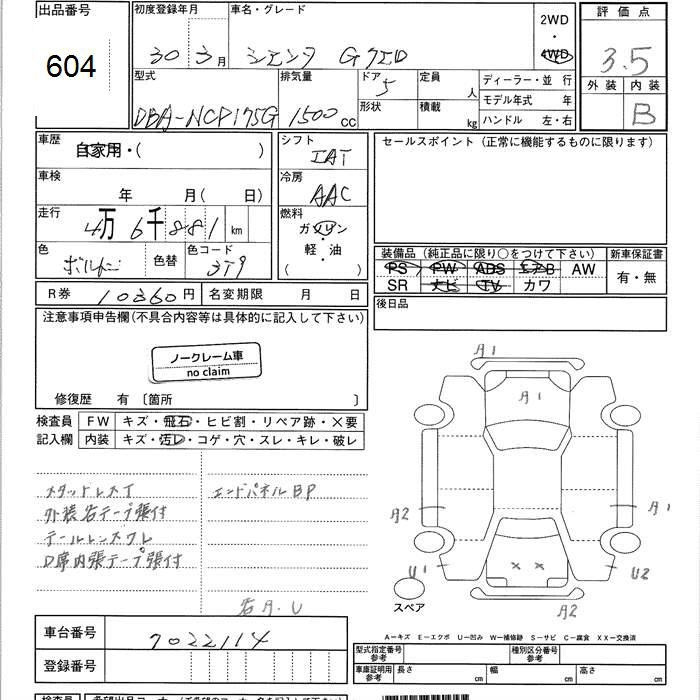 出品番号
604
初度登録年月
30 3月
車名・グレード
シエンタ Gクエロ
2WD
・
4WD
評価点
3.5
外装 内装
B
型式
DBA-NCP175G
排気量
1500 cc
ドア
5
形状
定員
人
積載
kg
ディーラー・並行
モデル年式 年
ハンドル 左・右
車歴
自家用・( )
車検
年 月( 日)
走行
4万6千881 km
色
ボルドー
色替
色コード
3T9
シフト
IAT
冷房
AAC
燃料
ガソリン
・
軽・油
( )
セールスポイント (正常に機能するものに限ります)
装備品 (純正品に限り○をつけて下さい)
PS PW ABS エアB AW
SR ナビ TV カワ
新車保証書
有・無
後日品
R券 10360円
名変期限 月 日
注意事項申告欄(不具合内容等は具体的に記入して下さい)
ノークレーム車
no claim
修復歴 有 〔箇所 〕
検査員
記入欄
FW キズ・飛石・ヒビ割・リペア跡・×要
内装 キズ・汚レ・コゲ・穴・スレ・キレ・破レ
スタッドレスT
外装右テープ張付
テールレンズワレ
D席内張テープ張付
エンドパネルBP
右A.U
A1
A1
A2
A1
U1
U2
× ×
A2
スペア
A-キズ E-エクボ U-凹み W-補修跡 S-サビ C-腐食 XX-交換済
車台番号
7022114
登録番号
型式指定番号
参考
種別区分番号
参考
車庫証明用
参考
長さ cm
幅 cm
高さ cm
検査員